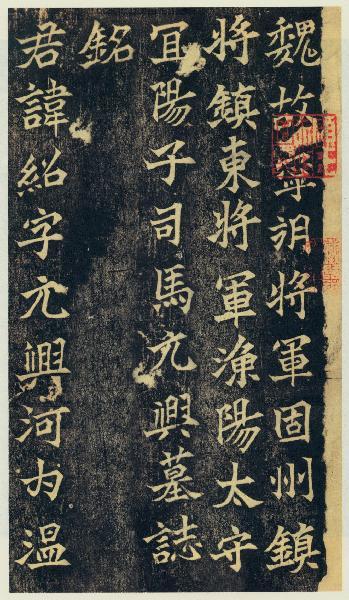 魏故寧朔將軍固州鎮
將鎮東將軍漁陽太守
宜陽子司馬元興墓誌
銘
君諱紹字元興河內溫